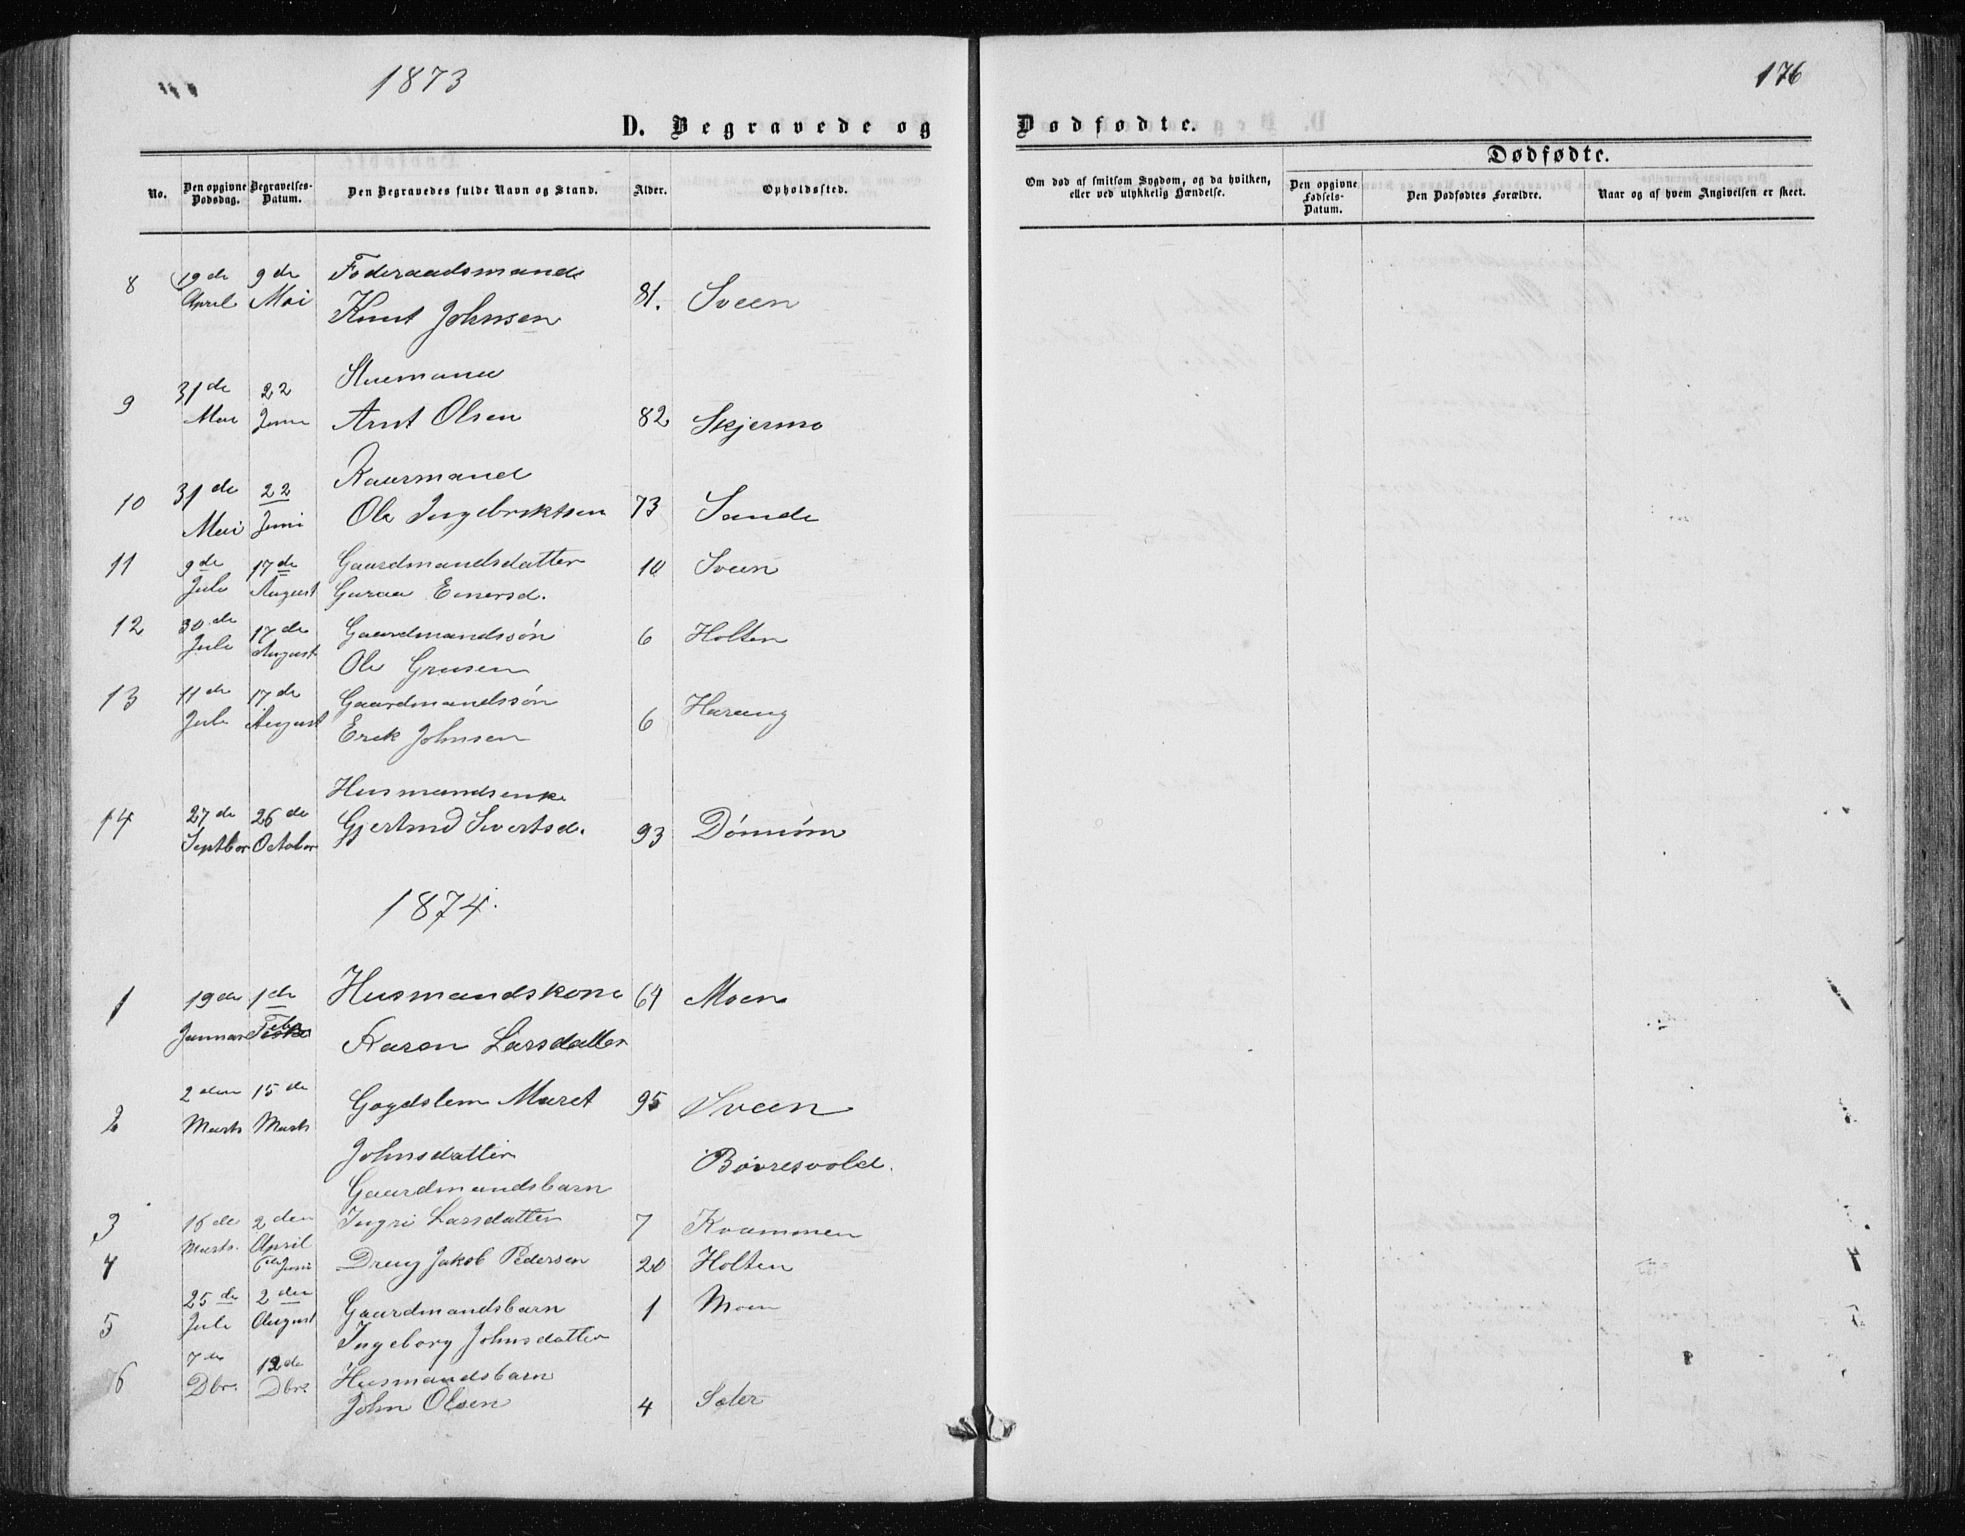 1873
176
D. Begravede og Dødfødte.
Dødfødte.
No.
Den opgivne Dødsdag.
Begravelses-Datum.
Den Begravedes fulde Navn og Stand.
Alder.
Opholdssted.
Om død af smitsom Sygdom, og da hvilken, eller ved ulykkelig Hændelse.
Den opgivne Fødsels-Datum.
Den Dødfødtes Forældre.
Naar og af hvem Angivelsen er skeet.
8 19de 9de Foderaadsmand
April Mai Knut Johnsen 81. Sveen
9 31de 22 Stuemand
Mai Juni Arnt Olsen 82 Skjermo
10 31de 22 Kaarmand
Mai Juni Ole Ingebriktsen 73 Sande
11 9de 17de Gaardmandsdatter 10 Sveen
Juli August Guraa Einersd.
12 30de 17de Gaardmandssøn 6 Holten
Juli August Ole
13 11de 17de Gaardmandssøn Harang
Juli August Erik Johnsen 6
Husmandsenke
14 27de 26de Gjertrud Sivertsd. 93
Septbor October
1874.
1 19de 1de Husmandskone 64 Moen
Januar Febr Karen Larsdatter
2 2den 15de Maret 95 Sveen
Marts Marts Johnsdatter Bøvresvold.
Gaardmandsbarn
3 16de 2den Ingri Larsdatter 7 Kvammen
Marts. April
4 6te Juni Dreng Jakob Pedersen 20 Holten
5 25de 2den Gaardmandsbarn 1 Moen
Juli August Ingeborg Johnsdatter
6 7de 12de Husmandsbarn
Dbr. Dbr. John Olsen 4 Sæter